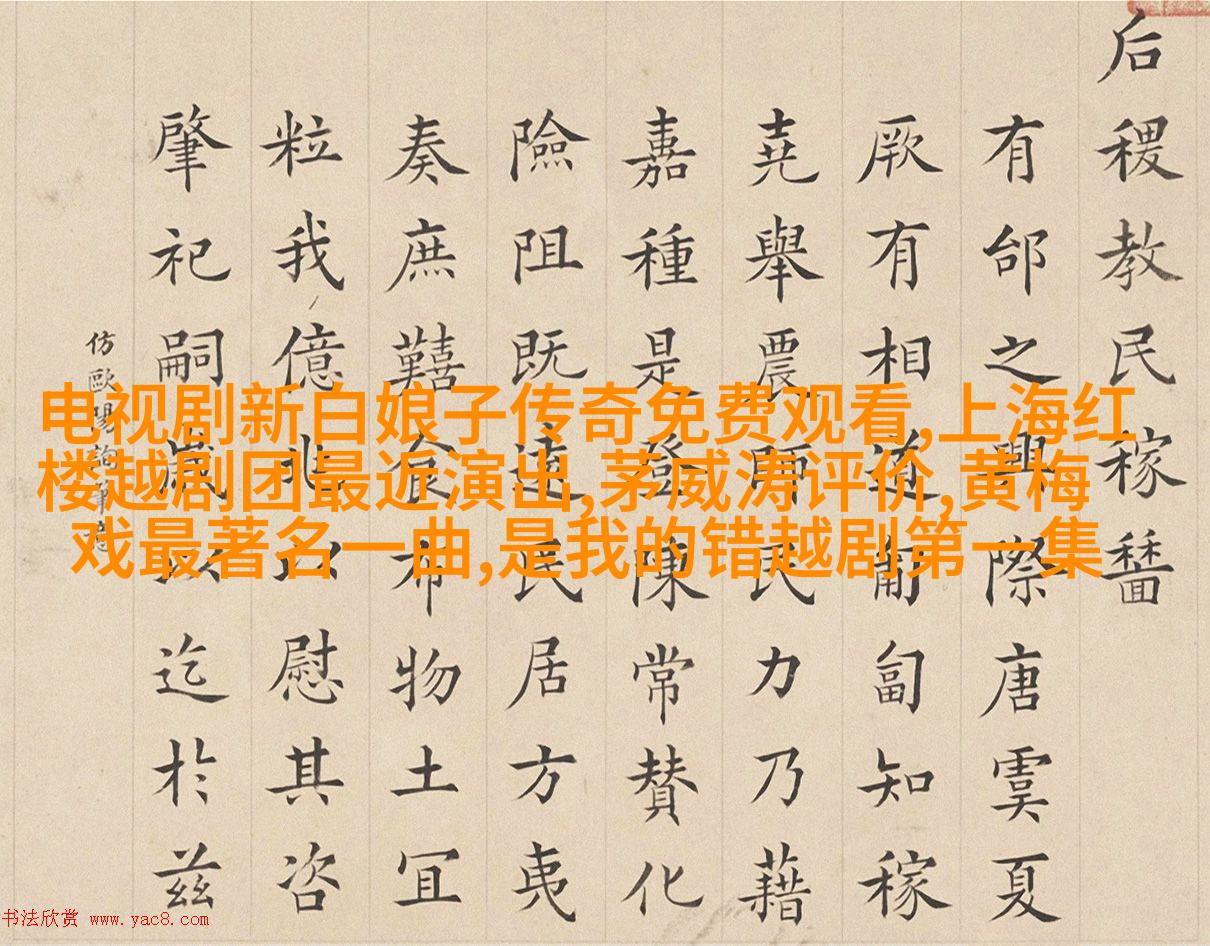 后稷教民稼穡
有邰之興際唐虞夏
厥有相道匍匐知稼
堯舉農師民力乃藉
嘉種是登陳常贊化
險阻既民居方夷
奏庶囏食布物土宜
粒我億兆以慰其咨
肇祀嗣歲以迄於茲
仿歐陽詢筆意
电视剧新白娘子传奇免费观看,上海红
楼越剧团最近演出,茅威涛评价,黄梅
戏最著名一曲,是我的错越剧第一集
书法欣赏 www.yac8.com